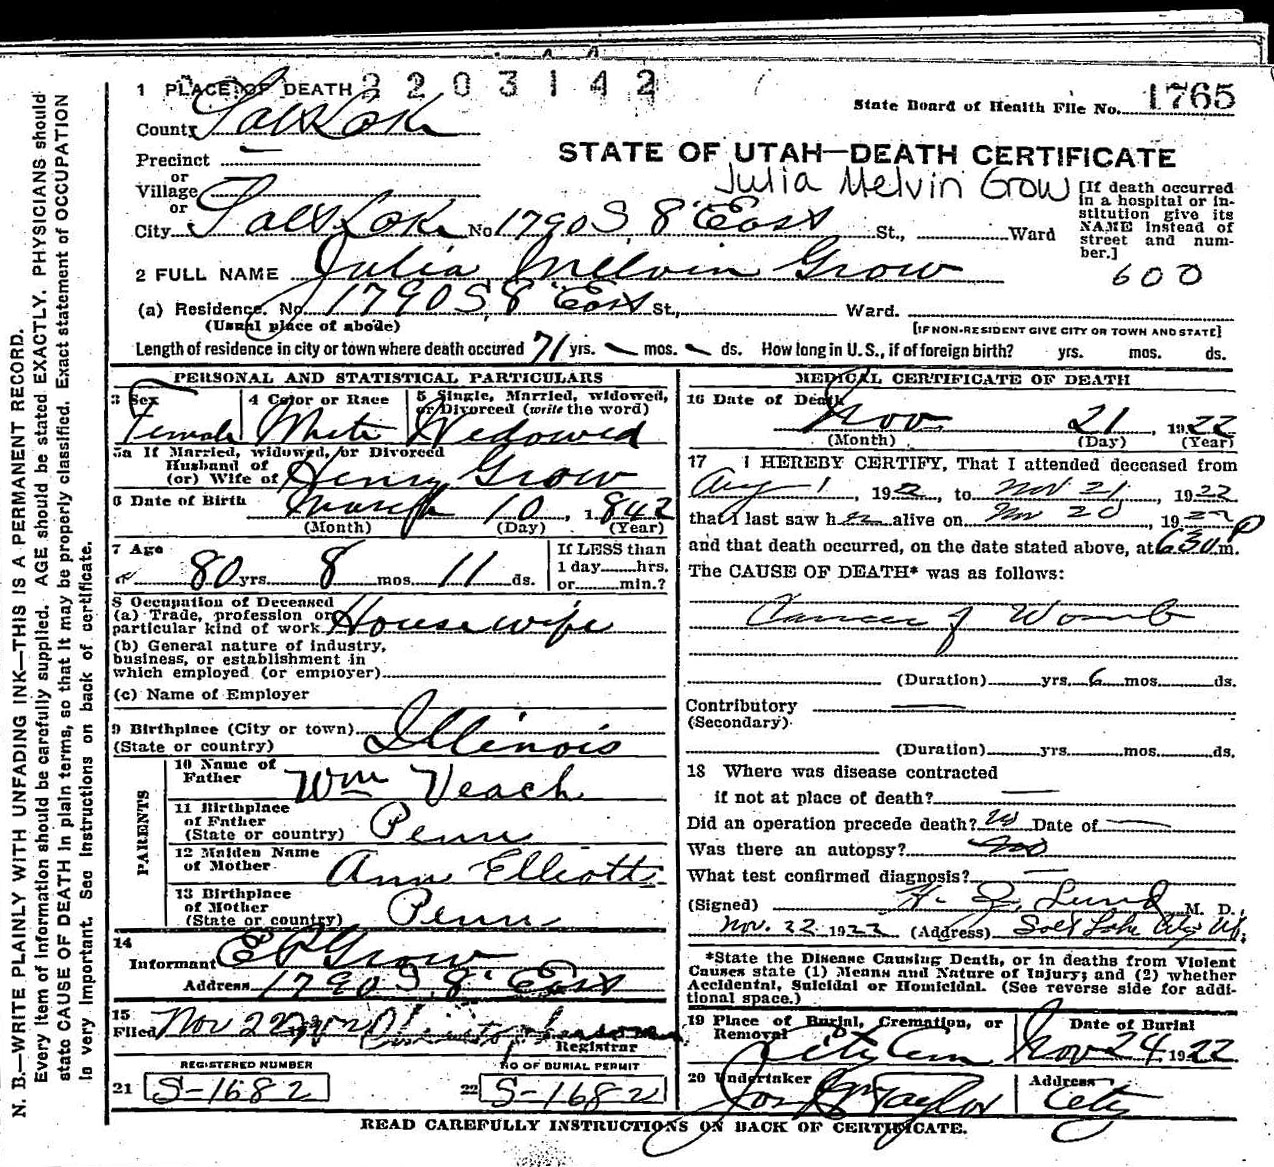 2203142
1 PLACE OF DEATH
State Board of Health File No. 1765
County Salt Lake
STATE OF UTAH—DEATH CERTIFICATE
Precinct
or
Village
or
Julia Melvin Grow
[If death occurred in a hospital or institution give its NAME instead of street and number.]
600
City Salt Lake No 1790 S. 8" East St., Ward
2 FULL NAME Julia Melvin Grow
(a) Residence. No. 1790 S, 8" East St., Ward.
(Usual place of abode)
[IF NON-RESIDENT GIVE CITY OR TOWN AND STATE]
Length of residence in city or town where death occured 71 yrs. – mos. – ds. How long in U. S., if of foreign birth? yrs. mos. ds.
PERSONAL AND STATISTICAL PARTICULARS
3 Sex
Female
4 Color or Race
White
5 Single, Married, widowed, or Divorced (write the word)
Widowed
5a If Married, widowed, or Divorced
Husband of
(or) Wife of Henry Grow
6 Date of Birth March 10, 1842
(Month) (Day) (Year)
7 Age
80 yrs. 8 mos. 11 ds.
If LESS than
1 day hrs.
or min.?
8 Occupation of Deceased
(a) Trade, profession or
particular kind of work House wife
(b) General nature of industry,
business, or establishment in
which employed (or employer)
(c) Name of Employer
9 Birthplace (City or town)
(State or country) Illinois
PARENTS
10 Name of
Father Wm Veach
11 Birthplace
of Father
(State or country) Penn
12 Maiden Name
of Mother Ann Elliott
13 Birthplace
of Mother
(State or country) Penn
14
Informant E P Grow
Address 1790 S. 8" East
15
Filed Nov 22
Registrar
REGISTERED NUMBER
21 S-1682
NO OF BURIAL PERMIT
22 S-1682
MEDICAL CERTIFICATE OF DEATH
16 Date of Death
Nov 21 1922
(Month) (Day) (Year)
17 I HEREBY CERTIFY, That I attended deceased from
Aug 1, 1922, to Nov 21, 1922
that I last saw h er alive on Nov 20, 1922
and that death occurred, on the date stated above, at 630 P m.
The CAUSE OF DEATH* was as follows:
Cancer of Womb
(Duration) yrs. 6 mos. ds.
Contributory —
(Secondary)
(Duration) yrs. mos. ds.
18 Where was disease contracted
if not at place of death? —
Did an operation precede death? no Date of —
Was there an autopsy? no
What test confirmed diagnosis? —
(Signed) H. J. Lund M. D.
Nov. 22 1922 (Address) Salt Lake City Ut.
*State the Disease Causing Death, or in deaths from Violent
Causes state (1) Means and Nature of Injury; and (2) whether
Accidental, Suicidal or Homicidal. (See reverse side for additional space.)
19 Place of Burial, Cremation, or
Removal
City Cem
Date of Burial
Nov 24, 1922
20 Undertaker
Jos Wm Taylor
Address
City
READ CAREFULLY INSTRUCTIONS ON BACK OF CERTIFICATE.
N. B.—WRITE PLAINLY WITH UNFADING INK—THIS IS A PERMANENT RECORD.
Every item of information should be carefully supplied. AGE should be stated EXACTLY. PHYSICIANS should
state CAUSE OF DEATH in plain terms, so that it may be properly classified. Exact statement of OCCUPATION
is very important. See instructions on back of certificate.